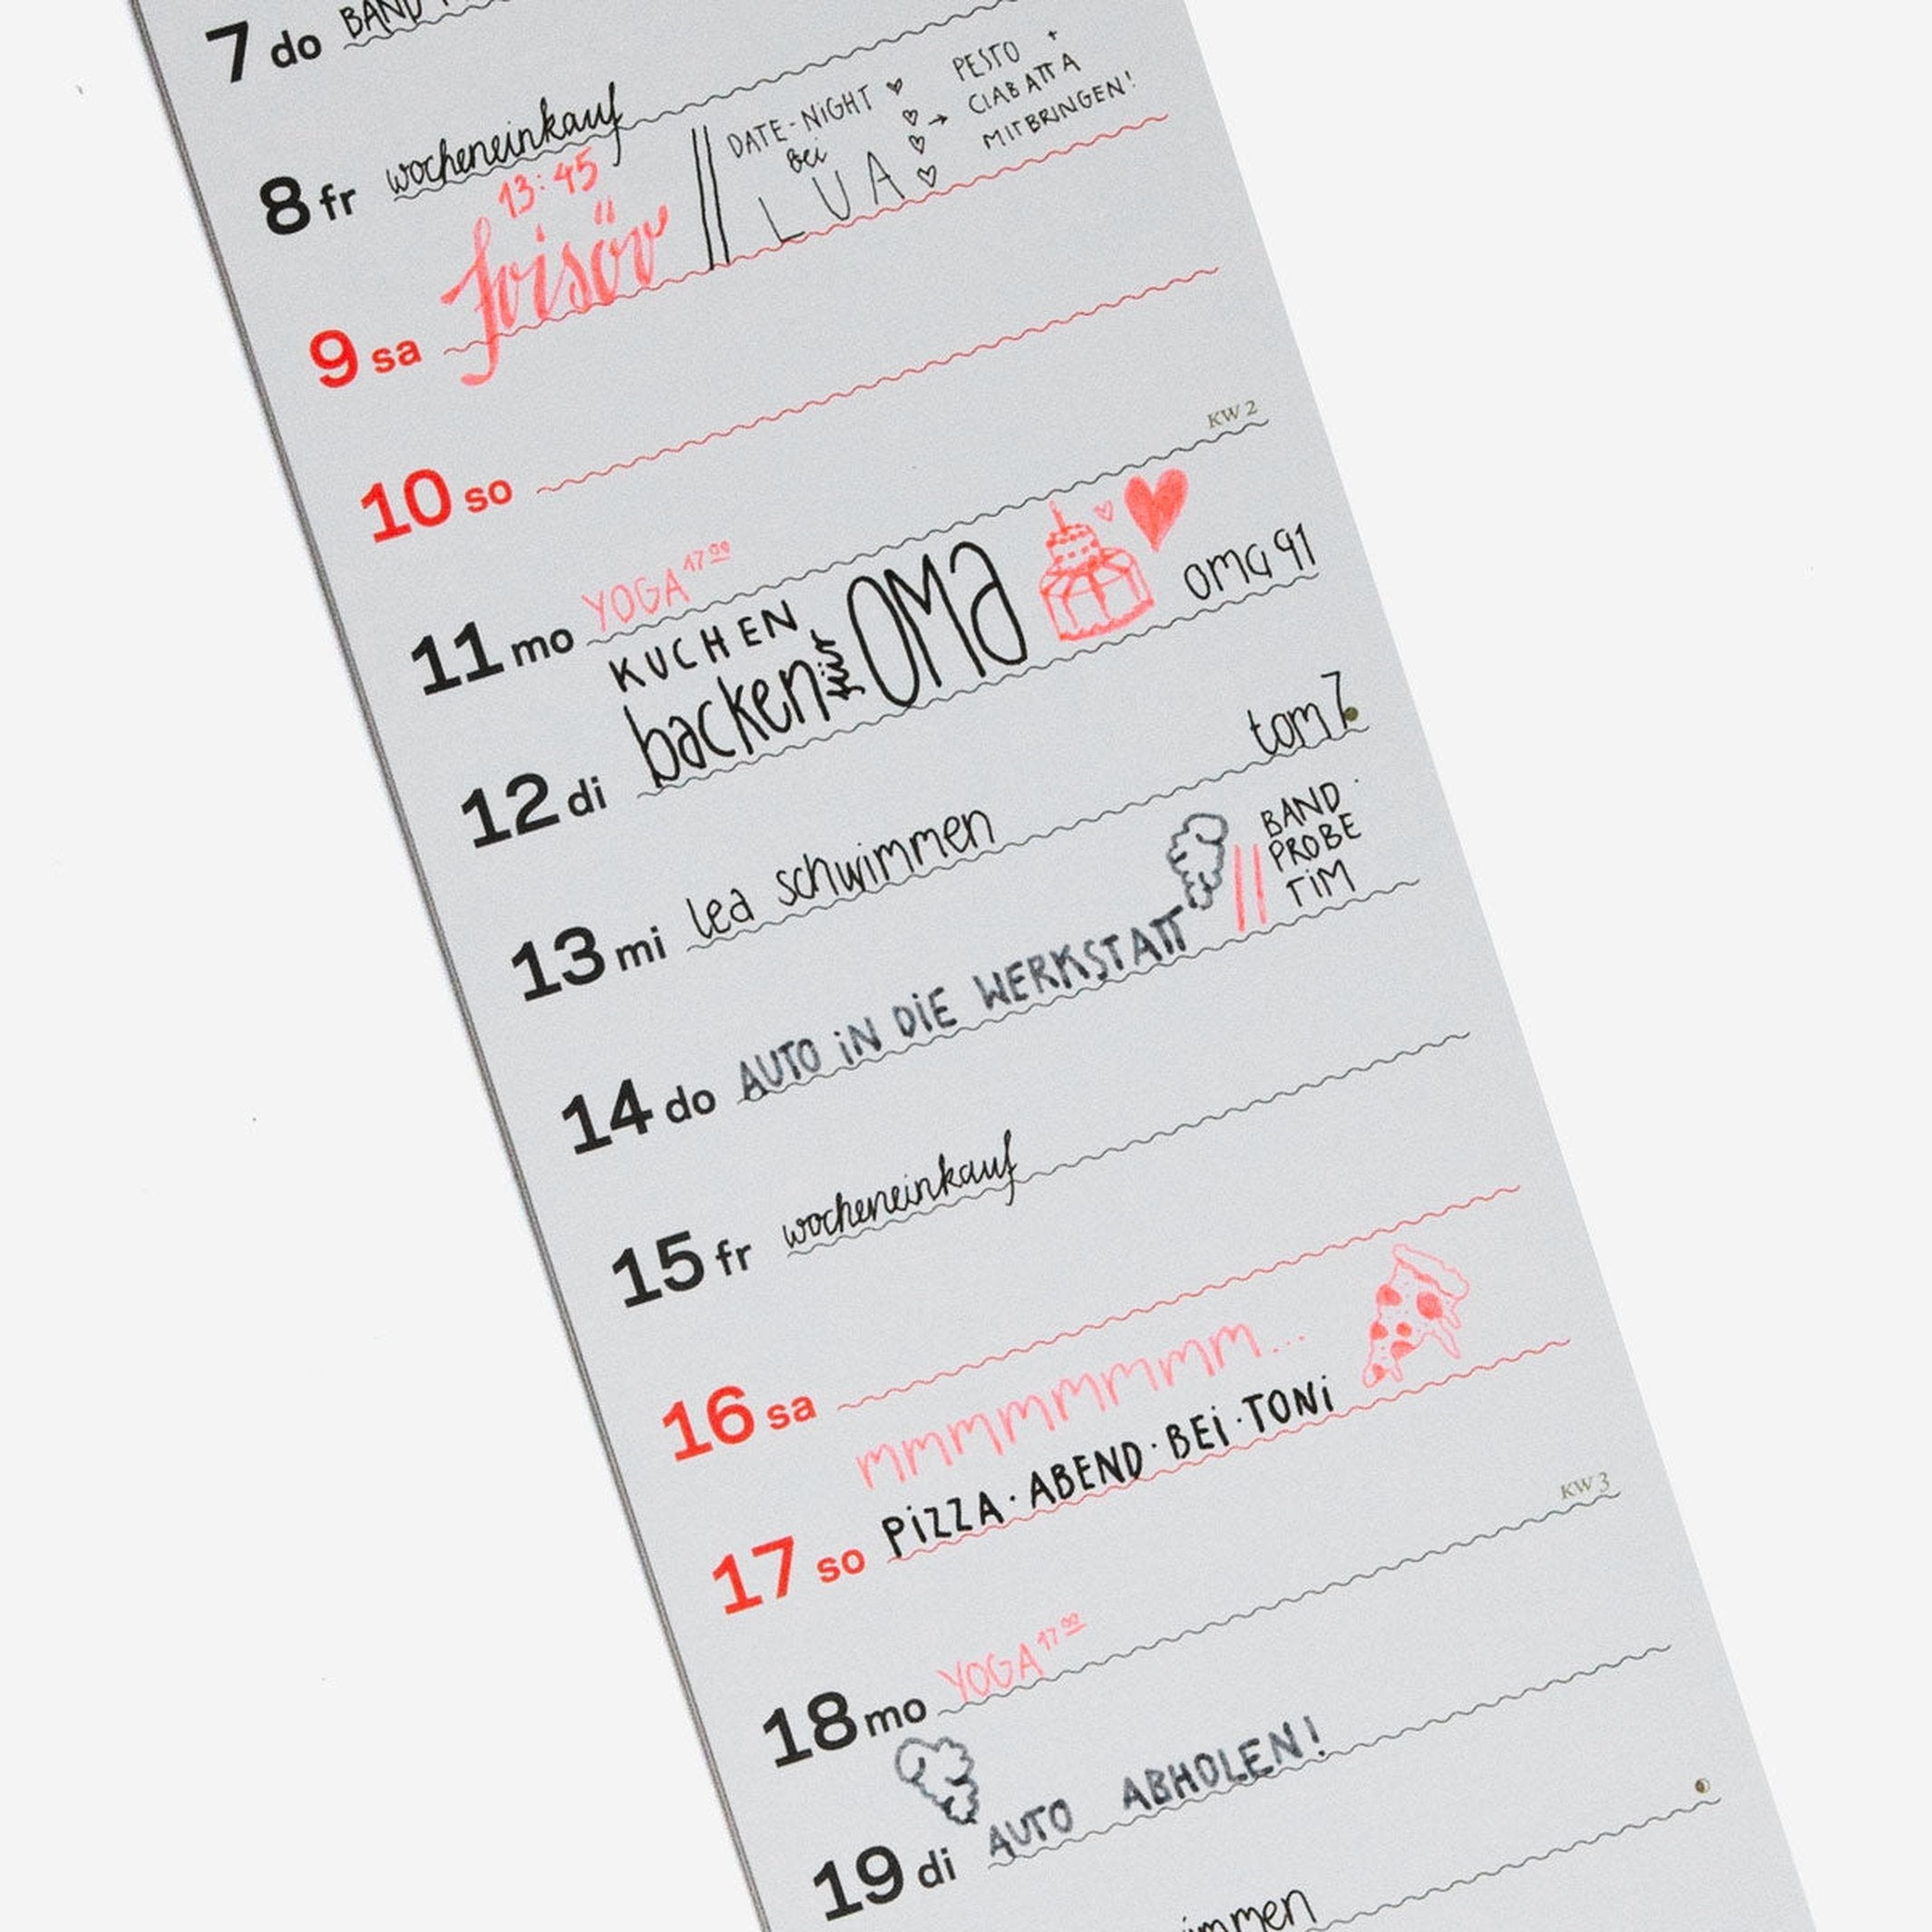 7 do BAND
8 fr wocheneinkauf
13:45
frisör
DATE-NiGHT
Bei
LUA
PESTO +
CIABATTA
MITBRINGEN!
9 sa
10 so
KW 2
11 mo YOGA 17 00
KUCHEN
backen für OMA
oma 91
12 di
13 mi lea schwimmen
tom 7
14 do AUTO iN DiE WERKSTATT
BAND·
PROBE
TiM
15 fr wocheneinkauf
16 sa
mmmmmmmm...
17 so PiZZA·ABEND·BEi·TONi
KW 3
18 mo YOGA 17 00
19 di AUTO ABHOLEN!